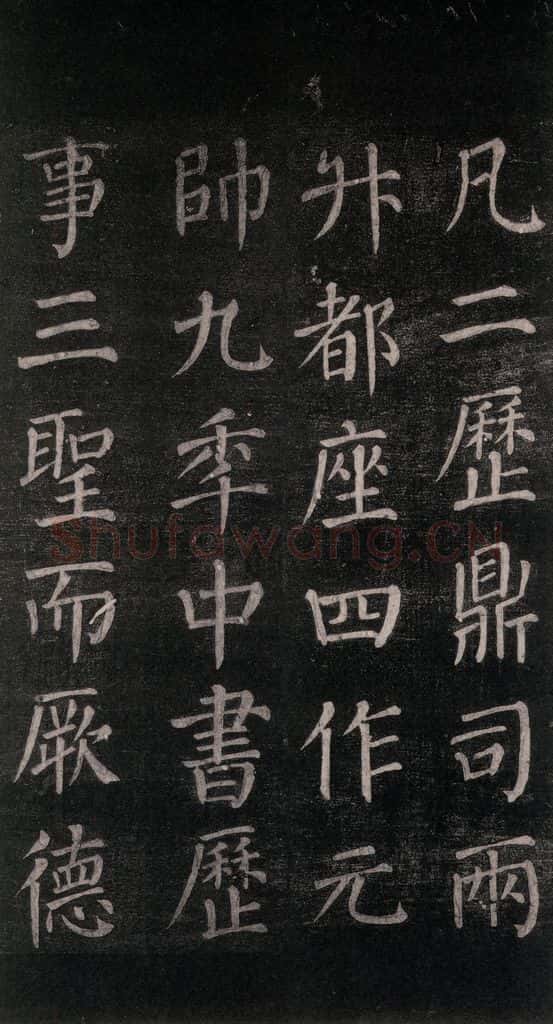 凡二歷鼎司兩
升都座四作元
帥九秊中書歷
事三聖而厥德
Shufawang.CN